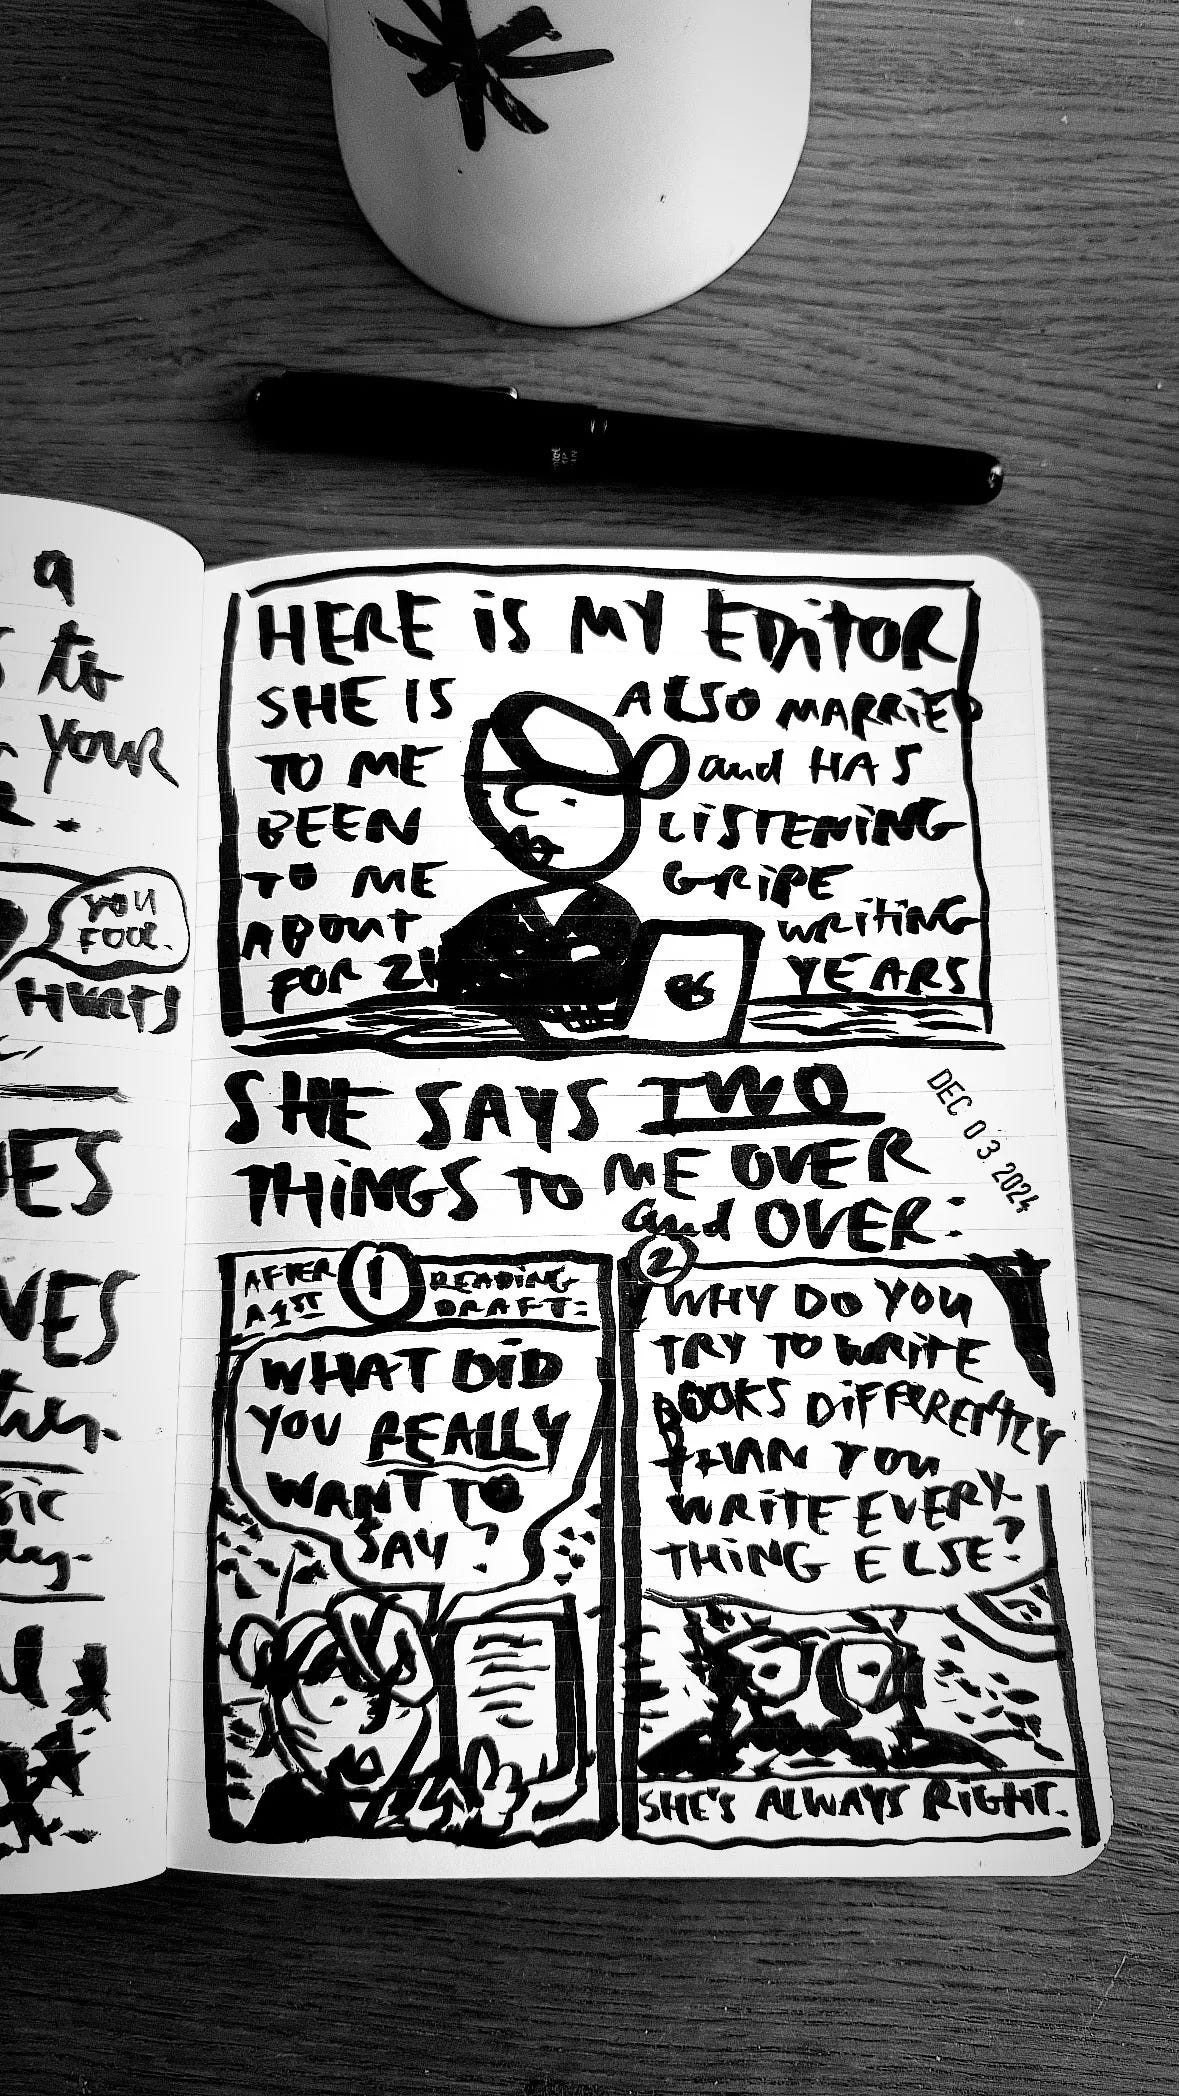 a
to
YOUR
YOU
FOOL.
HURTS
HERE iS MY EDiTOR
SHE IS ALSO MARRiED
TO ME and HAS
BEEN LiSTENiNG
TO ME GRiPE
ABOUT WRiTiNG
FOR YEARS
SHE SAYS TWO
THiNGS TO ME OVER
and OVER:
DEC 03 2024
1
AFTER READiNG
A 1ST DRAFT:
WHAT DiD
YOU REALLY
WANT TO
SAY?
2
WHY DO YOU
TRY TO WRiTE
BOOKS DiFFERENTLY
THAN YOU
WRiTE EVERY-
THiNG ELSE?
SHE'S ALWAYS RiGHT.